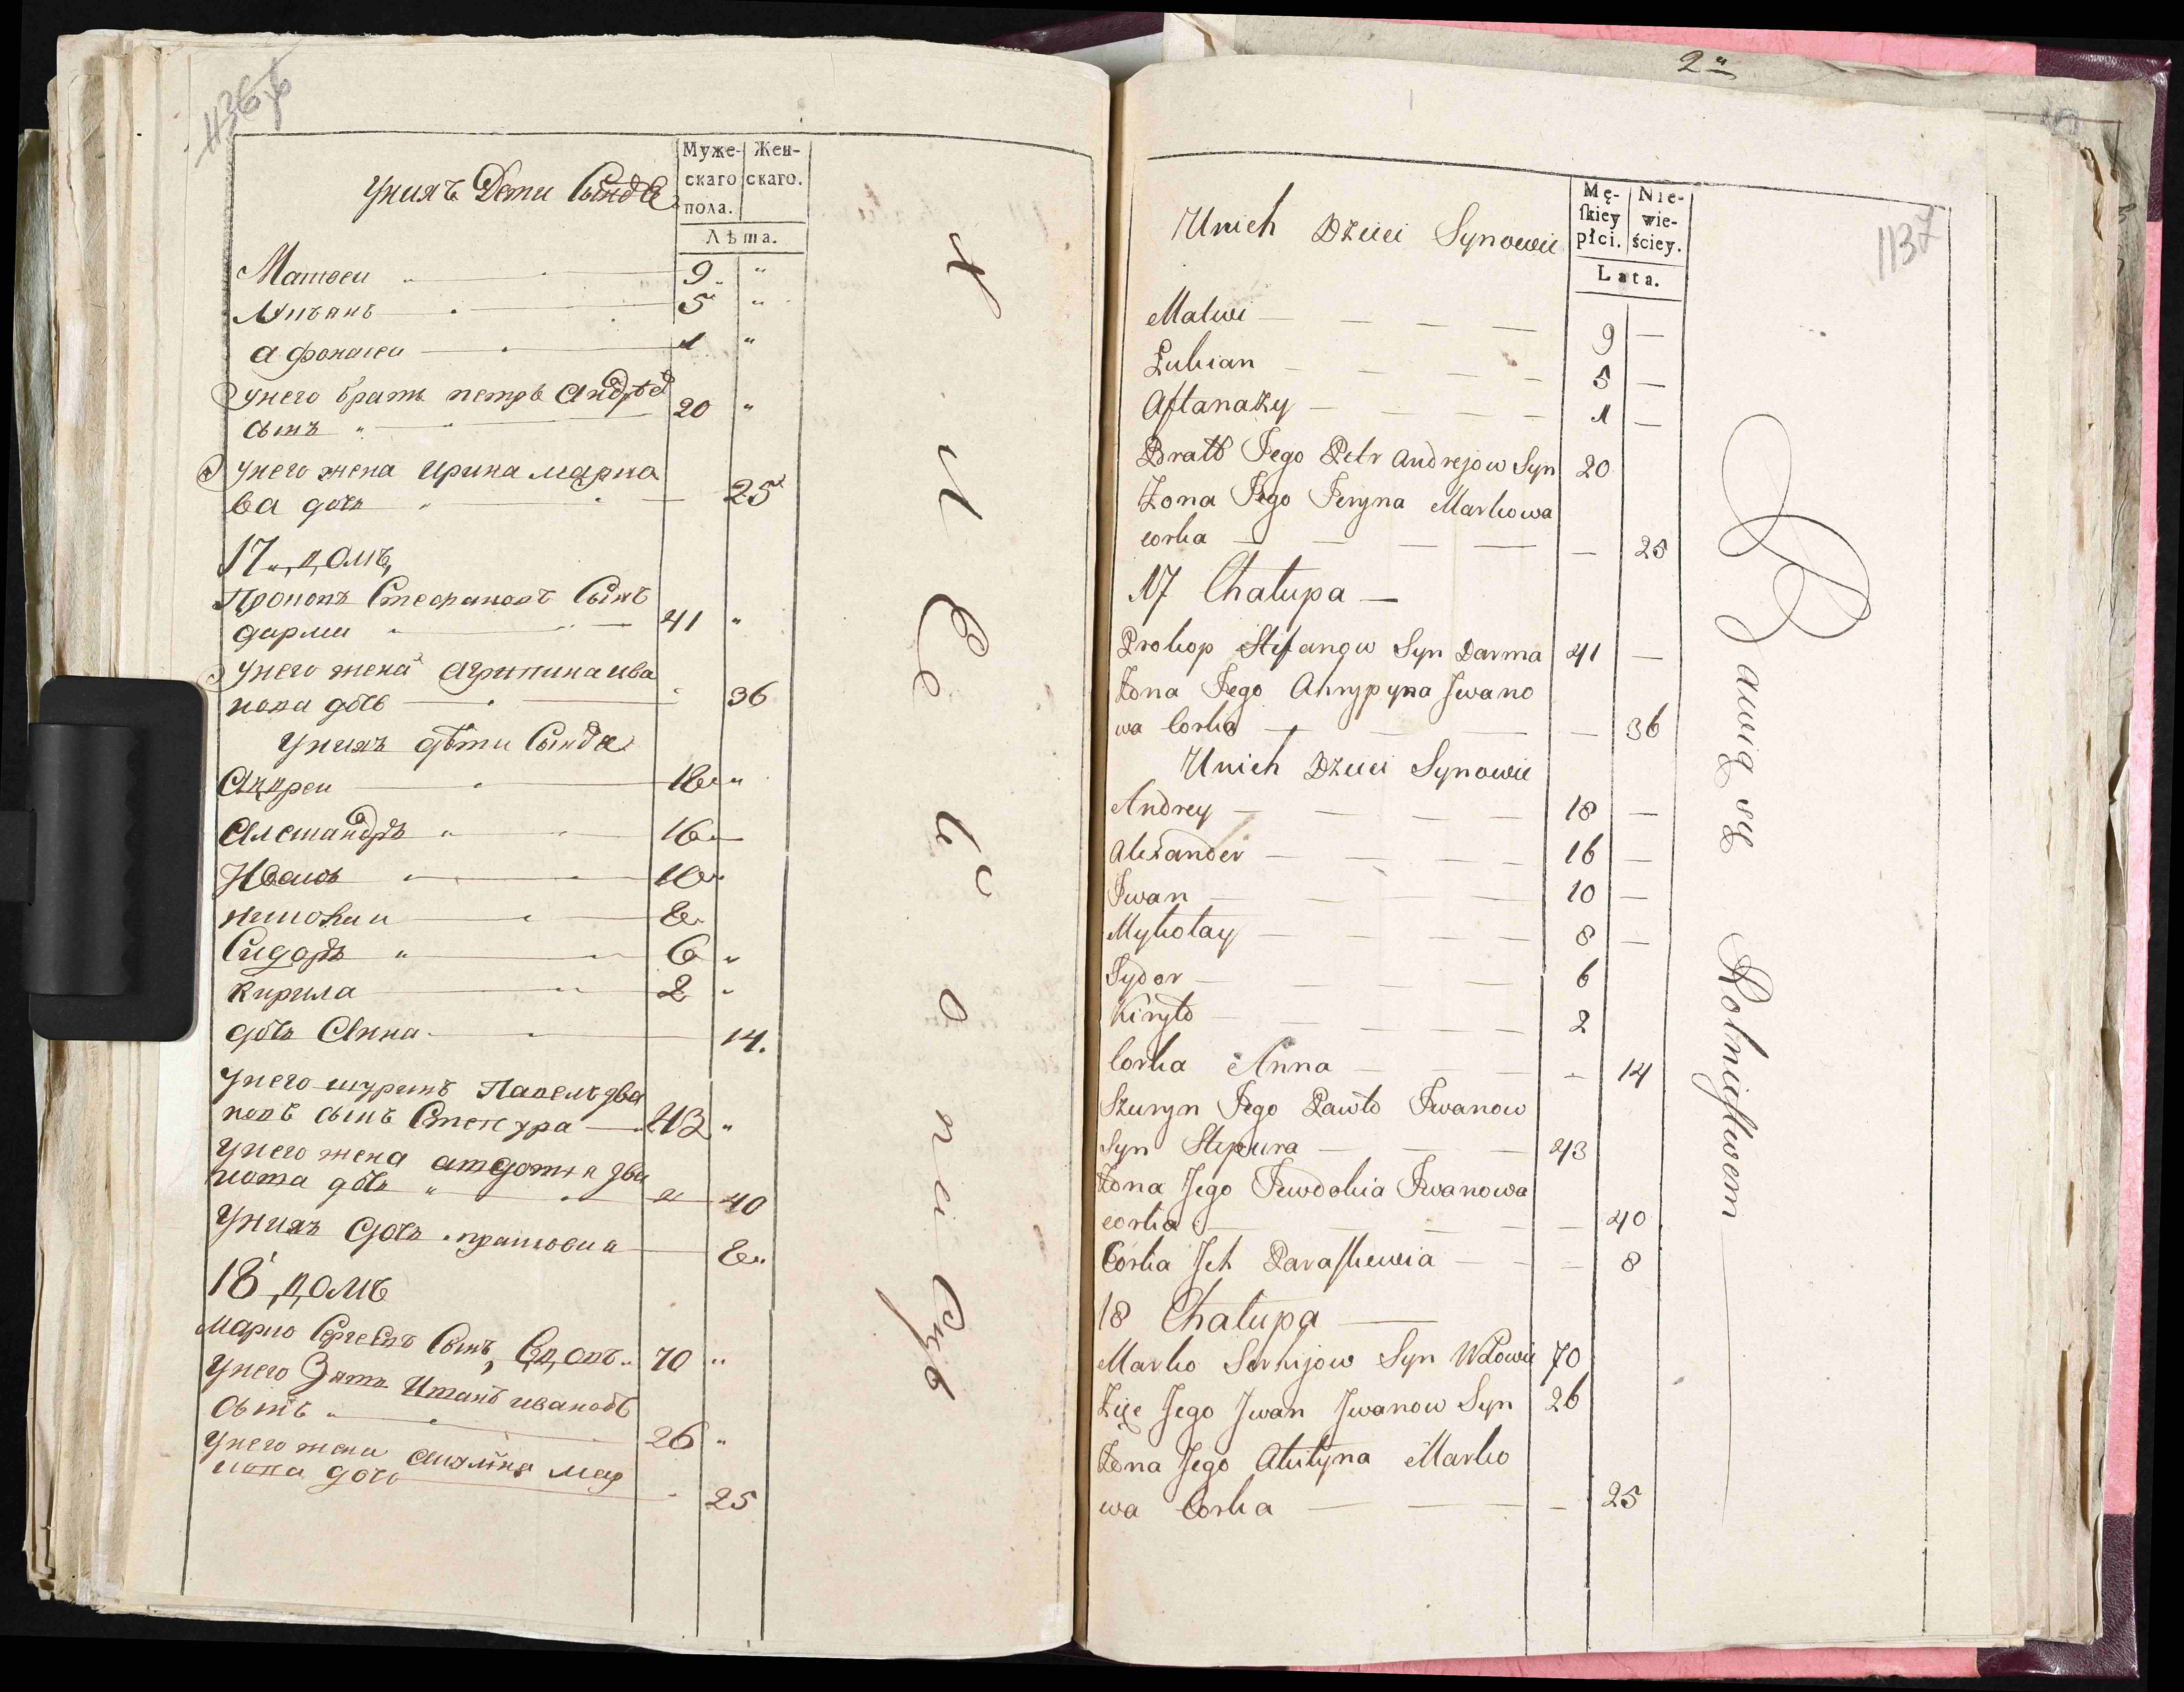 1136 об
Муже-
скаго
пола.
Жен-
скаго.
Лѣта.
унихъ Дети Сынове
Матвеи 9 "
Лукянъ 5 "
Афонасеи 1 "
унего братъ петръ Андреѣ
сынъ " 20 "
унего жена Ирина марко
ва дочь " 25
17 домъ
Прокопъ Стефановъ Сынъ
дарма 41 "
унего жена агрипина ива
нова дочь 36
унихъ дѣти Сынове
Андреи 18 "
Александръ " 16
Иванъ 10 "
николаи 8
Сидоръ " 6 "
Кирила 2 "
дочь Анна 14.
унего шуринъ Павелъ Ива
новъ сынъ Степура 43 "
унего жена
нова дочь " 40
унихъ дочь прасковиа 8 "
18 домъ
Марко Сергеевъ Сынъ, Вдовъ 70 "
унего Зять Иванъ ивановъ
сынъ 26 "
унего жена Акилина мар
кова дочь 25
2"
1137
Mę-
ſkiey
płci.
Nie-
wie-
ściey.
Lata.
Unich Dzieci Synowie
Matwi — — — — 9 —
Lukian — — — — 5 —
Aftanazy — — — — 1 —
Bratt Jego Petr Andrejow Syn 20
Żona Jego Jeryna Markowa
corka — — — — — 25
17 Chałupa —
Prokop Stefanow Syn Darma 41 —
Żona Jego Ahrypyna Iwano
wa Corka — — — — 36
Unich Dzieci Synowie
Andrey — — — — 18 —
Alexander — — — — 16 —
Iwan — — — — 10 —
Mykołay — — — — 8 —
Sydor — — — — 6
Kiryło — — — — 2
Corka Anna — — — — 14
Szuryn Jego Pawło Iwanow
Syn Stepura — — — 43
Żona Jego Iewdokia Iwanowa
corka — — — — 40
Corka Ich Paraſkewia — — — 8
18 Chałupa —
Marko Serhijow Syn Wdowie 70
Zięc Jego Iwan Iwanow Syn 26
Żona Jego Akilyna Marko
wa Corka — — — — 25
Bawią się Rolnictwem